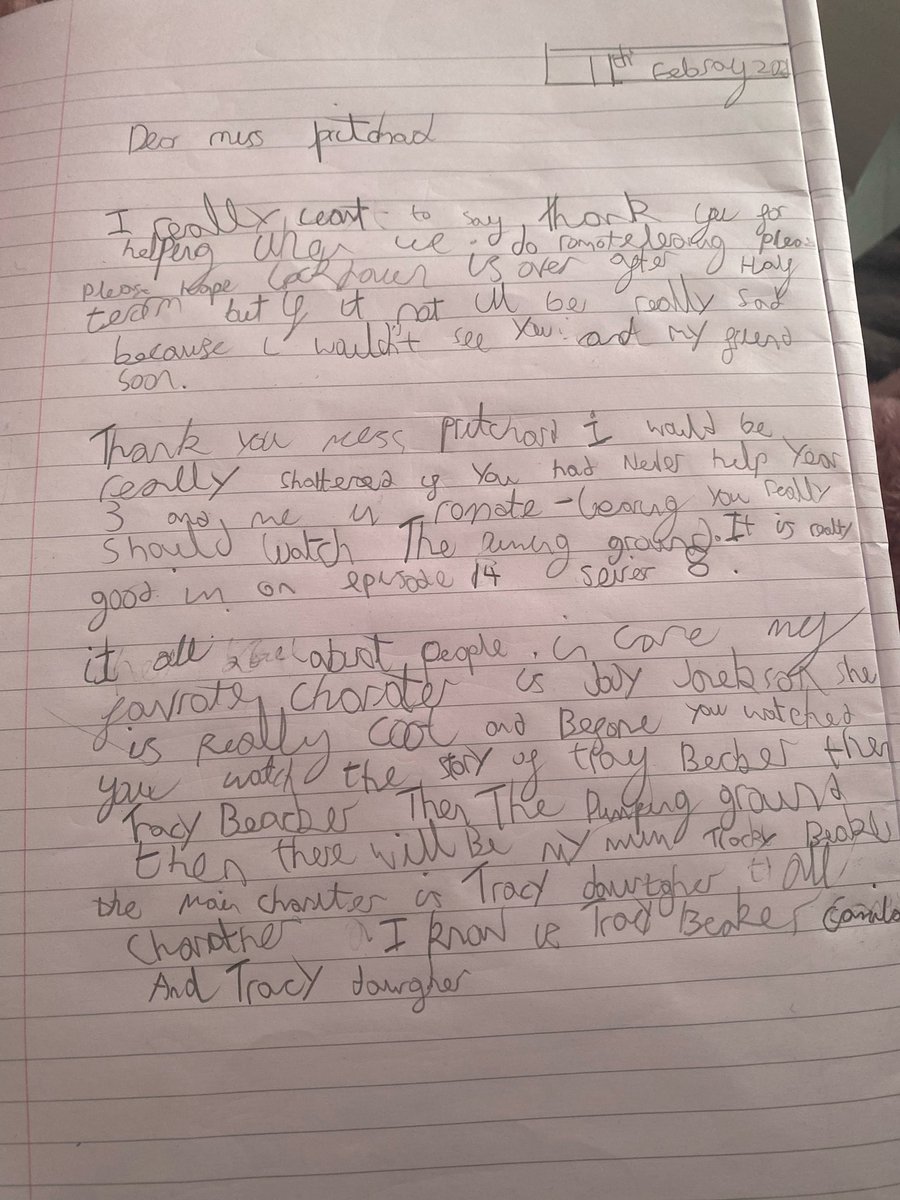 11th Febsray 202
Dear miss pritchad
I really want to say thank you for
helping when we do romote leaving pleas
please Hope lockdown is over after Half
term but if it not Ill be really sad
because i wouldn't see you and my friend
soon.
Thank you miss Pritchard I would be
really shattered if you had Never help Year
3 and me in romote-learing you really
should watch The ground. It is really
good in on episode 14 seiser 8.
it all about people in care my
favrote charater is Jody she
is really cool and Before you watched
you watch the story of tray Becker then
Tracy Beacker Then The Dumping ground
then there will Be my mum Tracky Beaker
the main chariter is Tracy dawrtgher all
charother I know is Tracy Beaker Camila
And Tracy dawrgher